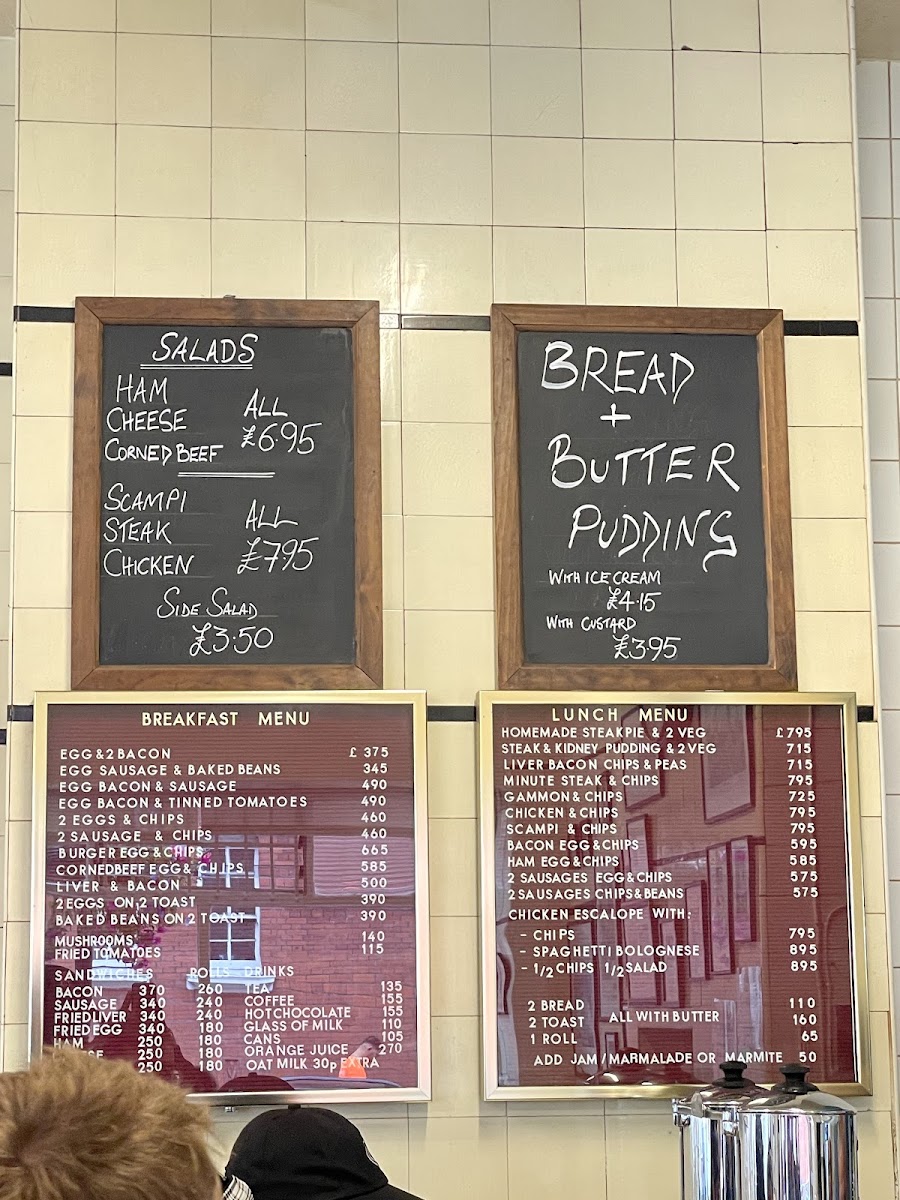 SALADS
HAM
CHEESE
CORNED BEEF
ALL
£6.95
SCAMPI
STEAK
CHICKEN
ALL
£7.95
SIDE SALAD
£3.50
BREAD
+
BUTTER
PUDDING
WITH ICE CREAM
£4.15
WITH CUSTARD
£3.95
BREAKFAST MENU
EGG & 2 BACON £ 375
EGG SAUSAGE & BAKED BEANS 345
EGG BACON & SAUSAGE 490
EGG BACON & TINNED TOMATOES 490
2 EGGS & CHIPS 460
2 SAUSAGE & CHIPS 460
BURGER EGG & CHIPS 665
CORNEDBEEF EGG & CHIPS 585
LIVER & BACON 500
2 EGGS ON 2 TOAST 390
BAKED BEANS ON 2 TOAST 390
MUSHROOMS 140
FRIED TOMATOES 115
SANDWICHES ROLLS DRINKS
BACON 370 260 TEA 135
SAUSAGE 340 240 COFFEE 155
FRIED LIVER 340 240 HOT CHOCOLATE 155
FRIED EGG 340 180 GLASS OF MILK 110
HAM 250 180 CANS 105
250 180 ORANGE JUICE 270
250 180 OAT MILK 30p EXTRA
LUNCH MENU
HOMEMADE STEAKPIE & 2 VEG £795
STEAK & KIDNEY PUDDING & 2 VEG 715
LIVER BACON CHIPS & PEAS 715
MINUTE STEAK & CHIPS 795
GAMMON & CHIPS 725
CHICKEN & CHIPS 795
SCAMPI & CHIPS 795
BACON EGG & CHIPS 595
HAM EGG & CHIPS 585
2 SAUSAGES EGG & CHIPS 575
2 SAUSAGES CHIPS & BEANS 575
CHICKEN ESCALOPE WITH:
- CHIPS 795
- SPAGHETTI BOLOGNESE 895
- 1/2 CHIPS 1/2 SALAD 895
2 BREAD 110
2 TOAST ALL WITH BUTTER 160
1 ROLL 65
ADD JAM / MARMALADE OR MARMITE 50